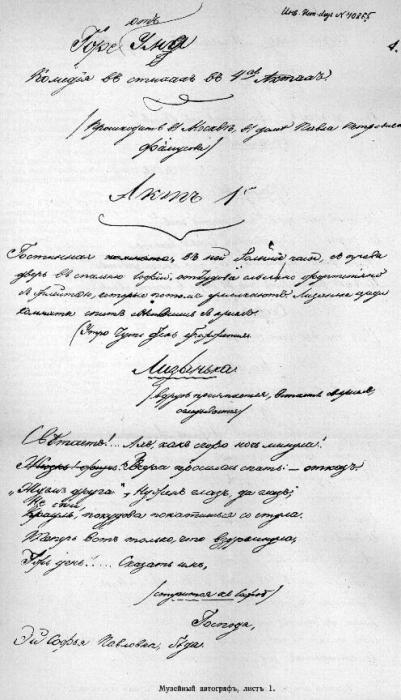 Инв. № 40855
1.
отъ
Горе Ума
Комедія въ стихахъ въ 4хъ Актахъ.
(Происходитъ въ Москвѣ, въ домѣ Павла
Фамусова)
Актъ 1й
Гостинная комната, въ ней большіе часы, съ права
дверь въ спальню Софіи, откудова слышно фортопіяно
съ флейтою, которыя потомъ умолкаютъ. Лизанька среди
комнаты спитъ свѣсившись съ креселъ.
(Утро чуть день брежжится)
Лизанька
(вдругъ просыпается, встаетъ съ креселъ,
оглядывается)
Свѣтаетъ!... Ахъ, какъ скоро ночь минула!
Вчера просилась спать: – отказъ.
„Ждемъ друга“, Нуженъ глазъ, да глазъ;
Не спи,
покудова не скатишься со стула.
Теперь вотъ только, что вздремнула,
Ужь день!.... Сказать имъ,
(стучится къ Софіи)
Господа,
Эй Софья Павловна, бѣда.
Музейный автографъ, листъ 1.